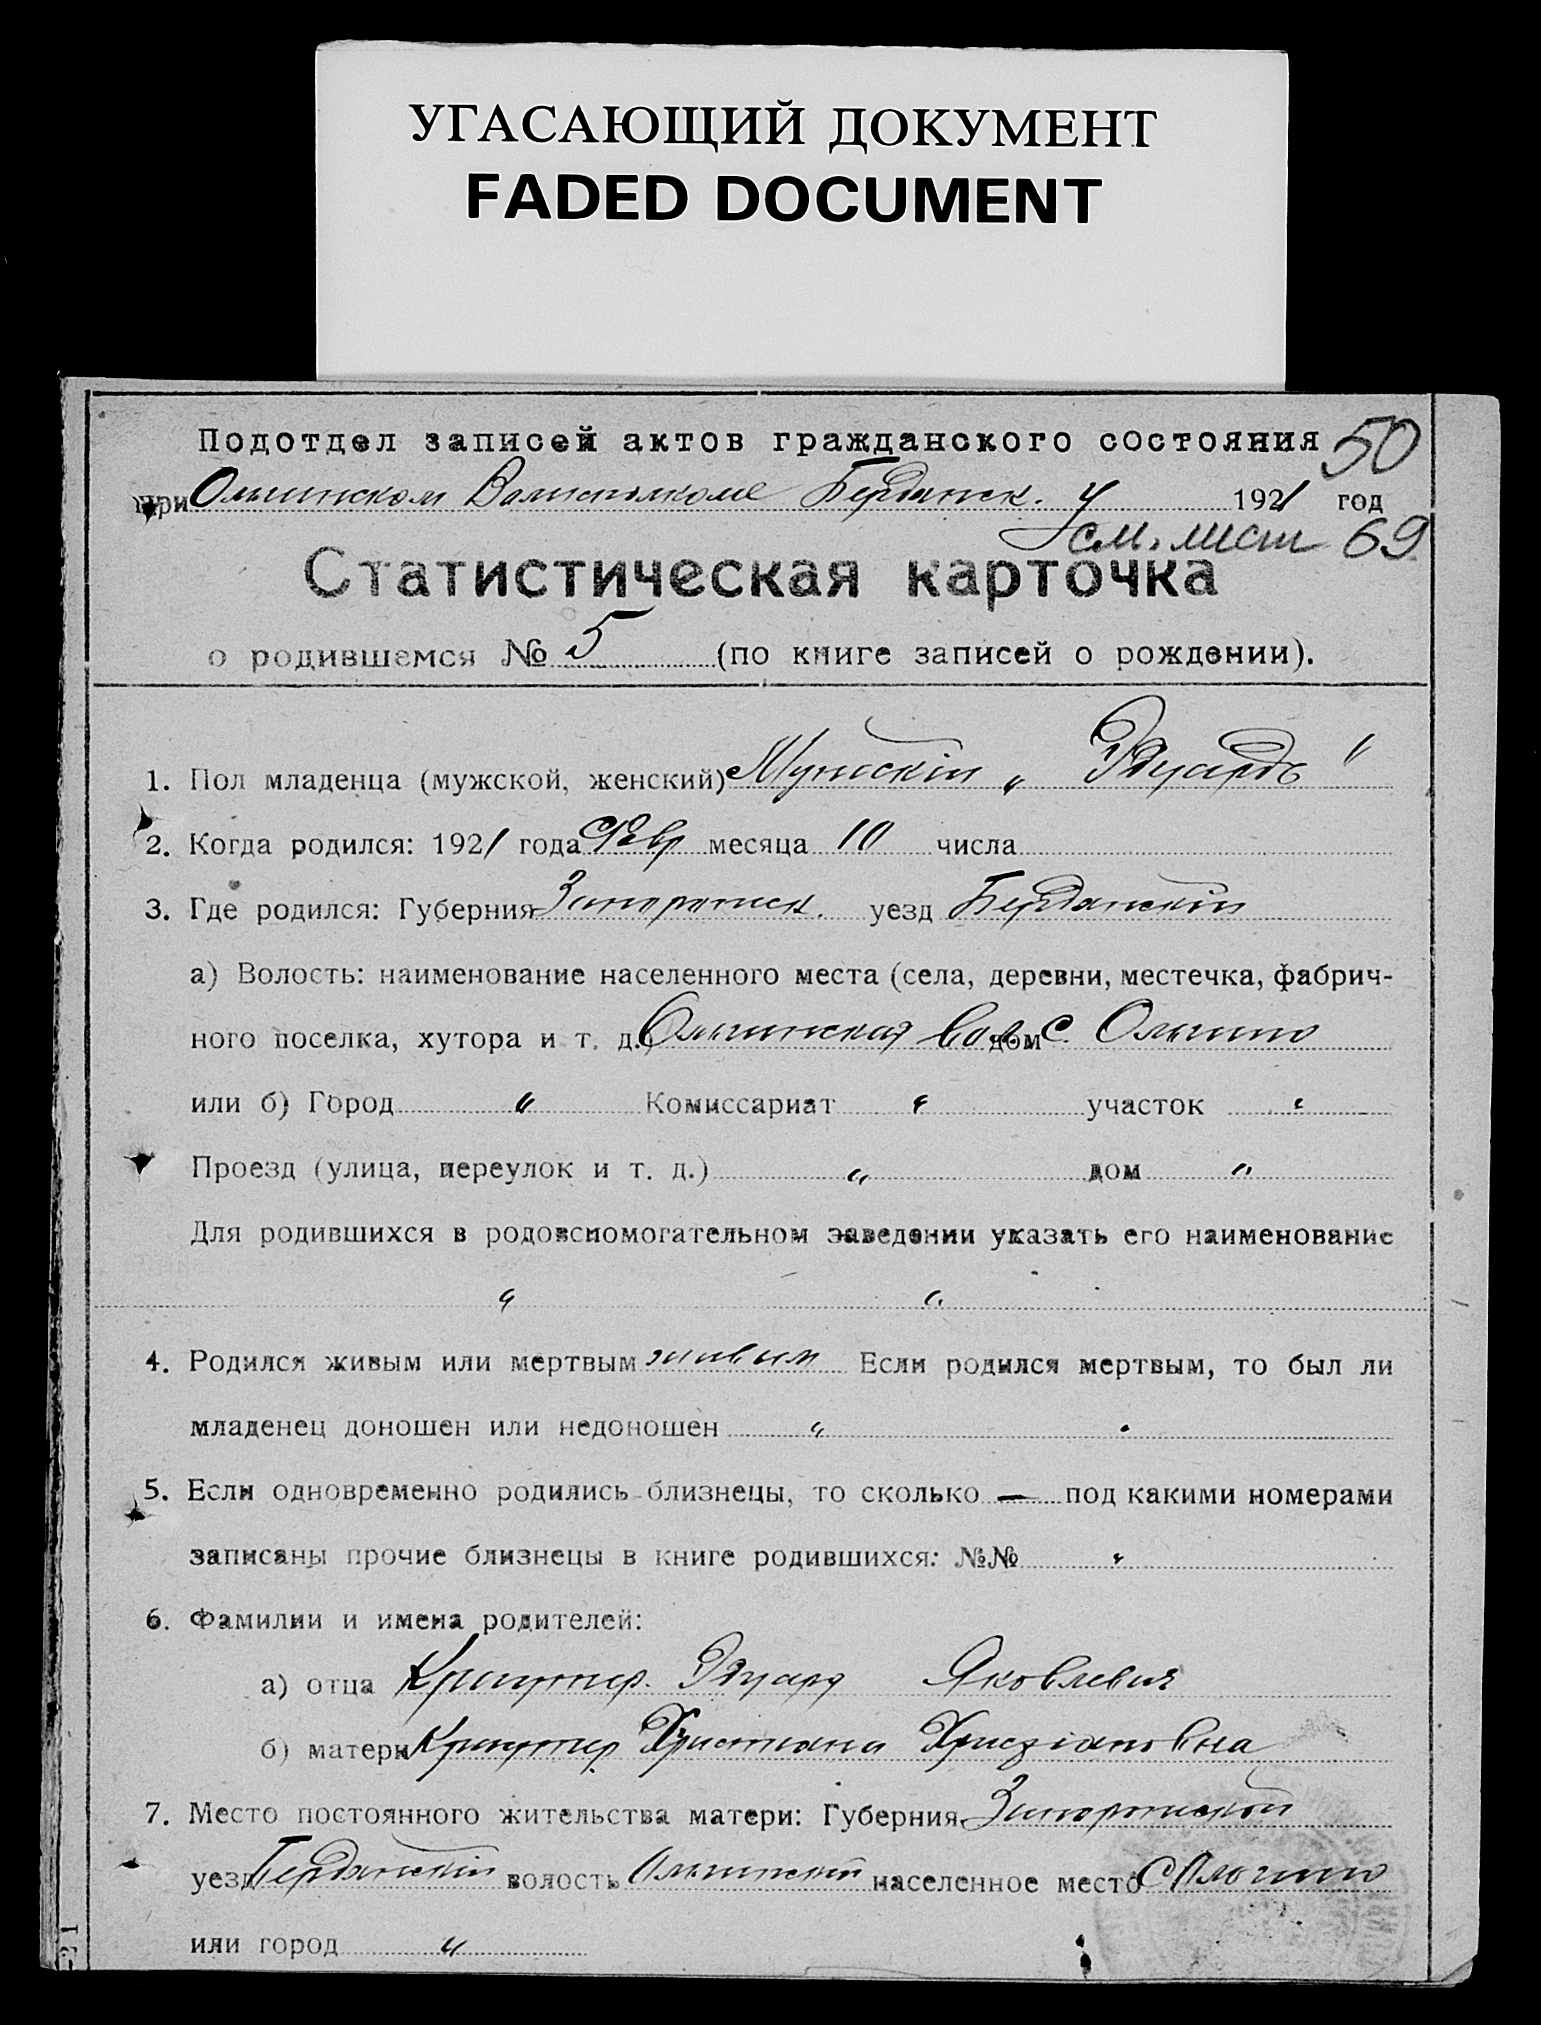 УГАСАЮЩИЙ ДОКУМЕНТ
FADED DOCUMENT
Подотдел записей актов гражданского состояния 50
при Ольгинском Волисполкоме Бердянск. у 1921 год
см. лист 69
Статистическая карточка
о родившемся № 5 (по книге записей о рождении).
1. Пол младенца (мужской, женский) Мужскій „ Эдуардъ "
2. Когда родился: 1921 года Февр месяца 10 числа
3. Где родился: Губерния Запорожск. уезд Бердянскій
а) Волость: наименование населенного места (села, деревни, местечка, фабрич-
ного поселка, хутора и т. д.) Ольгинская вол дом с. Ольгино
или б) Город " Комиссариат " участок "
Проезд (улица, переулок и т. д.) " дом "
Для родившихся в родовспомогательном заведении указать его наименование
" "
4. Родился живым или мертвым живым Если родился мертвым, то был ли
младенец доношен или недоношен "
5. Если одновременно родились близнецы, то сколько — под какими номерами
записаны прочие близнецы в книге родившихся: №№ "
6. Фамилии и имена родителей:
а) отца Краутер. Эдуард Яковлевич
б) матери Краутер Христиана Христіановна
7. Место постоянного жительства матери: Губерния Запорожской
уезд Бердянскій волость Ольгинской населенное место с Ольгино
или город "